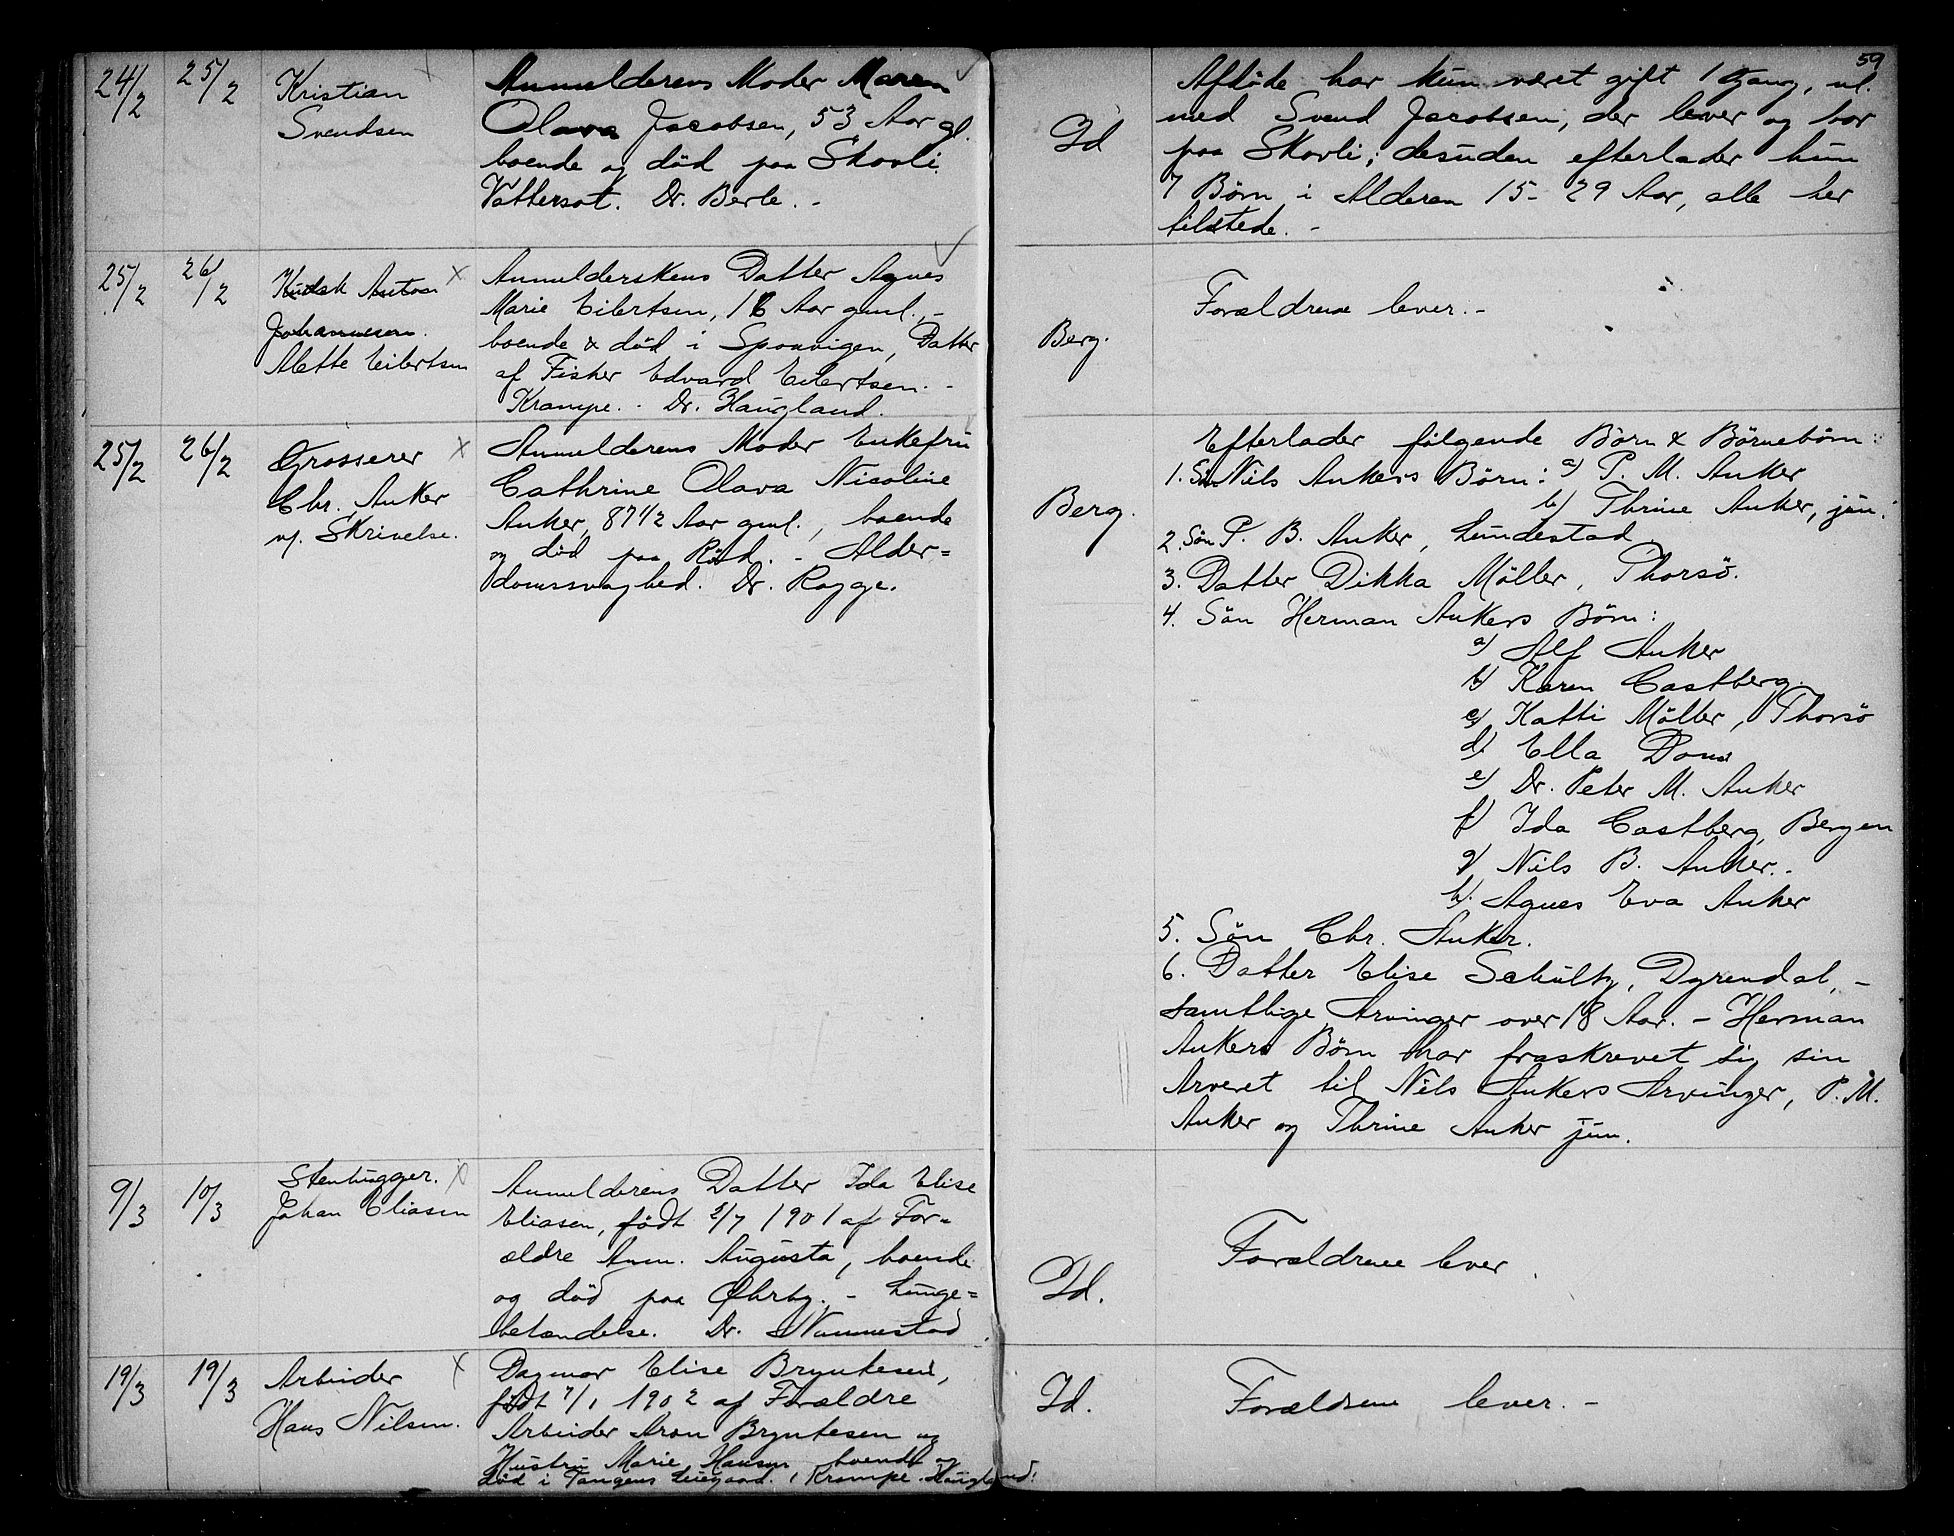 59
24/2 25/2 Kristian
Svendsen
Anmelderens Moder Maren
Olava Jacobsen, 53 Aar gl.
boende og död paa Skovli
Vattersöt. Dr. Berle. -
Id
Afdöde har kun været gift 1 Gang, nl.
med Svend Jacobsen, der lever og bor
paa Skovli; desuden efterlader hun
7 Börn i Alderen 15-29 Aar, alle her
tilstede. -
25/2 26/2 Kudsk Anton
Johannesen.
Mette Eilertsen
Anmelderskens Datter Agnes
Marie Eilertsen, 16 Aar gml., -
boende & död i Sponvigen, Datter
af Fisker Edvard Eilertsen. -
Krampe. - Dr. Haugland.
Berg.
Forældrene lever. -
25/2 26/2 Grosserer
Chr. Anker
v/. Skrivelse.
Anmelderens Moder Enkefru
Cathrine Olava Nicoline
Anker, 87 1/2 Aar gml., boende
og död paa Röd. - Alder=
domssvaghed. Dr. Rogge.
Berg.
Efterlader fölgende Börn & Börnebörn:
1. Sön Nils Ankers Börn: a) P. M. Anker
b) Thrine Anker, jun.
2. Sön P. B. Anker, Lundestad.
3. Datter Dikka Möller, Thorsö.
4. Sön Herman Ankers Börn:
a) Alf Anker
b) Karen Castberg.
c) Katti Möller, Thorsö
d) Ella Dons
e) Dr. Peter M. Anker
f) Ida Castberg, Bergen
g) Nils B. Anker. -
h). Agnes Eva Anker
5. Sön Chr. Anker.
6. Datter Elise Schultz, Dyrendal, -
samtlige Arvinger over 18 Aar. - Herman
Ankers Börn har fraskrevet sig sin
Arveret til Nils Ankers Arvinger, P. M.
Anker og Thrine Anker jun.
9/3 10/3 Stenhugger.
Johan Eliasen
Anmelderens Datter Ida Elise
Eliasen, födt 2/7 1901 af For-
ældre Anm. Augusta, boende
og död paa Öhrby. - Lunge=
betændelse. Dr. Nannestad.
Id.
Forældrene lever.
19/3 19/3 Arbeider
Hans Nilsen.
Dagmar Elise Bryntesen,
födt 7/1 1902 af Forældre
Arbeider Aron Bryntesen og
Hustru Marie Hansen boende og
död i Tangens Leiegaard. Krampe. Haugland.
Id.
Forældrene lever. -